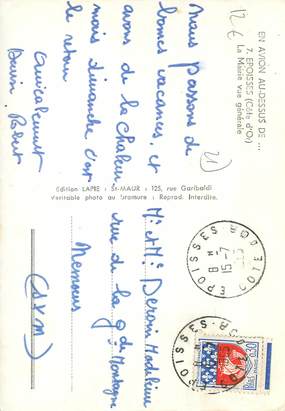 12€
EN AVION AU-DESSUS DE ...
7. EPOISSES (Côte d'Or)
La Mairie vue générale
21
Nous passons de
bonnes vacances, et
avons de la chaleur
mais dimanche c'est
le retour
Amicalement
Edition LAPIE : St-MAUR : 125, rue Garibaldi
Véritable photo au bromure : Reprod. Interdite.
EPOISSES
COTE D'OR
15-7
Mr et Me Derain Madeleine
rue de la gde Montagne
Nemours
(S et M)
EPOISSES
0,20